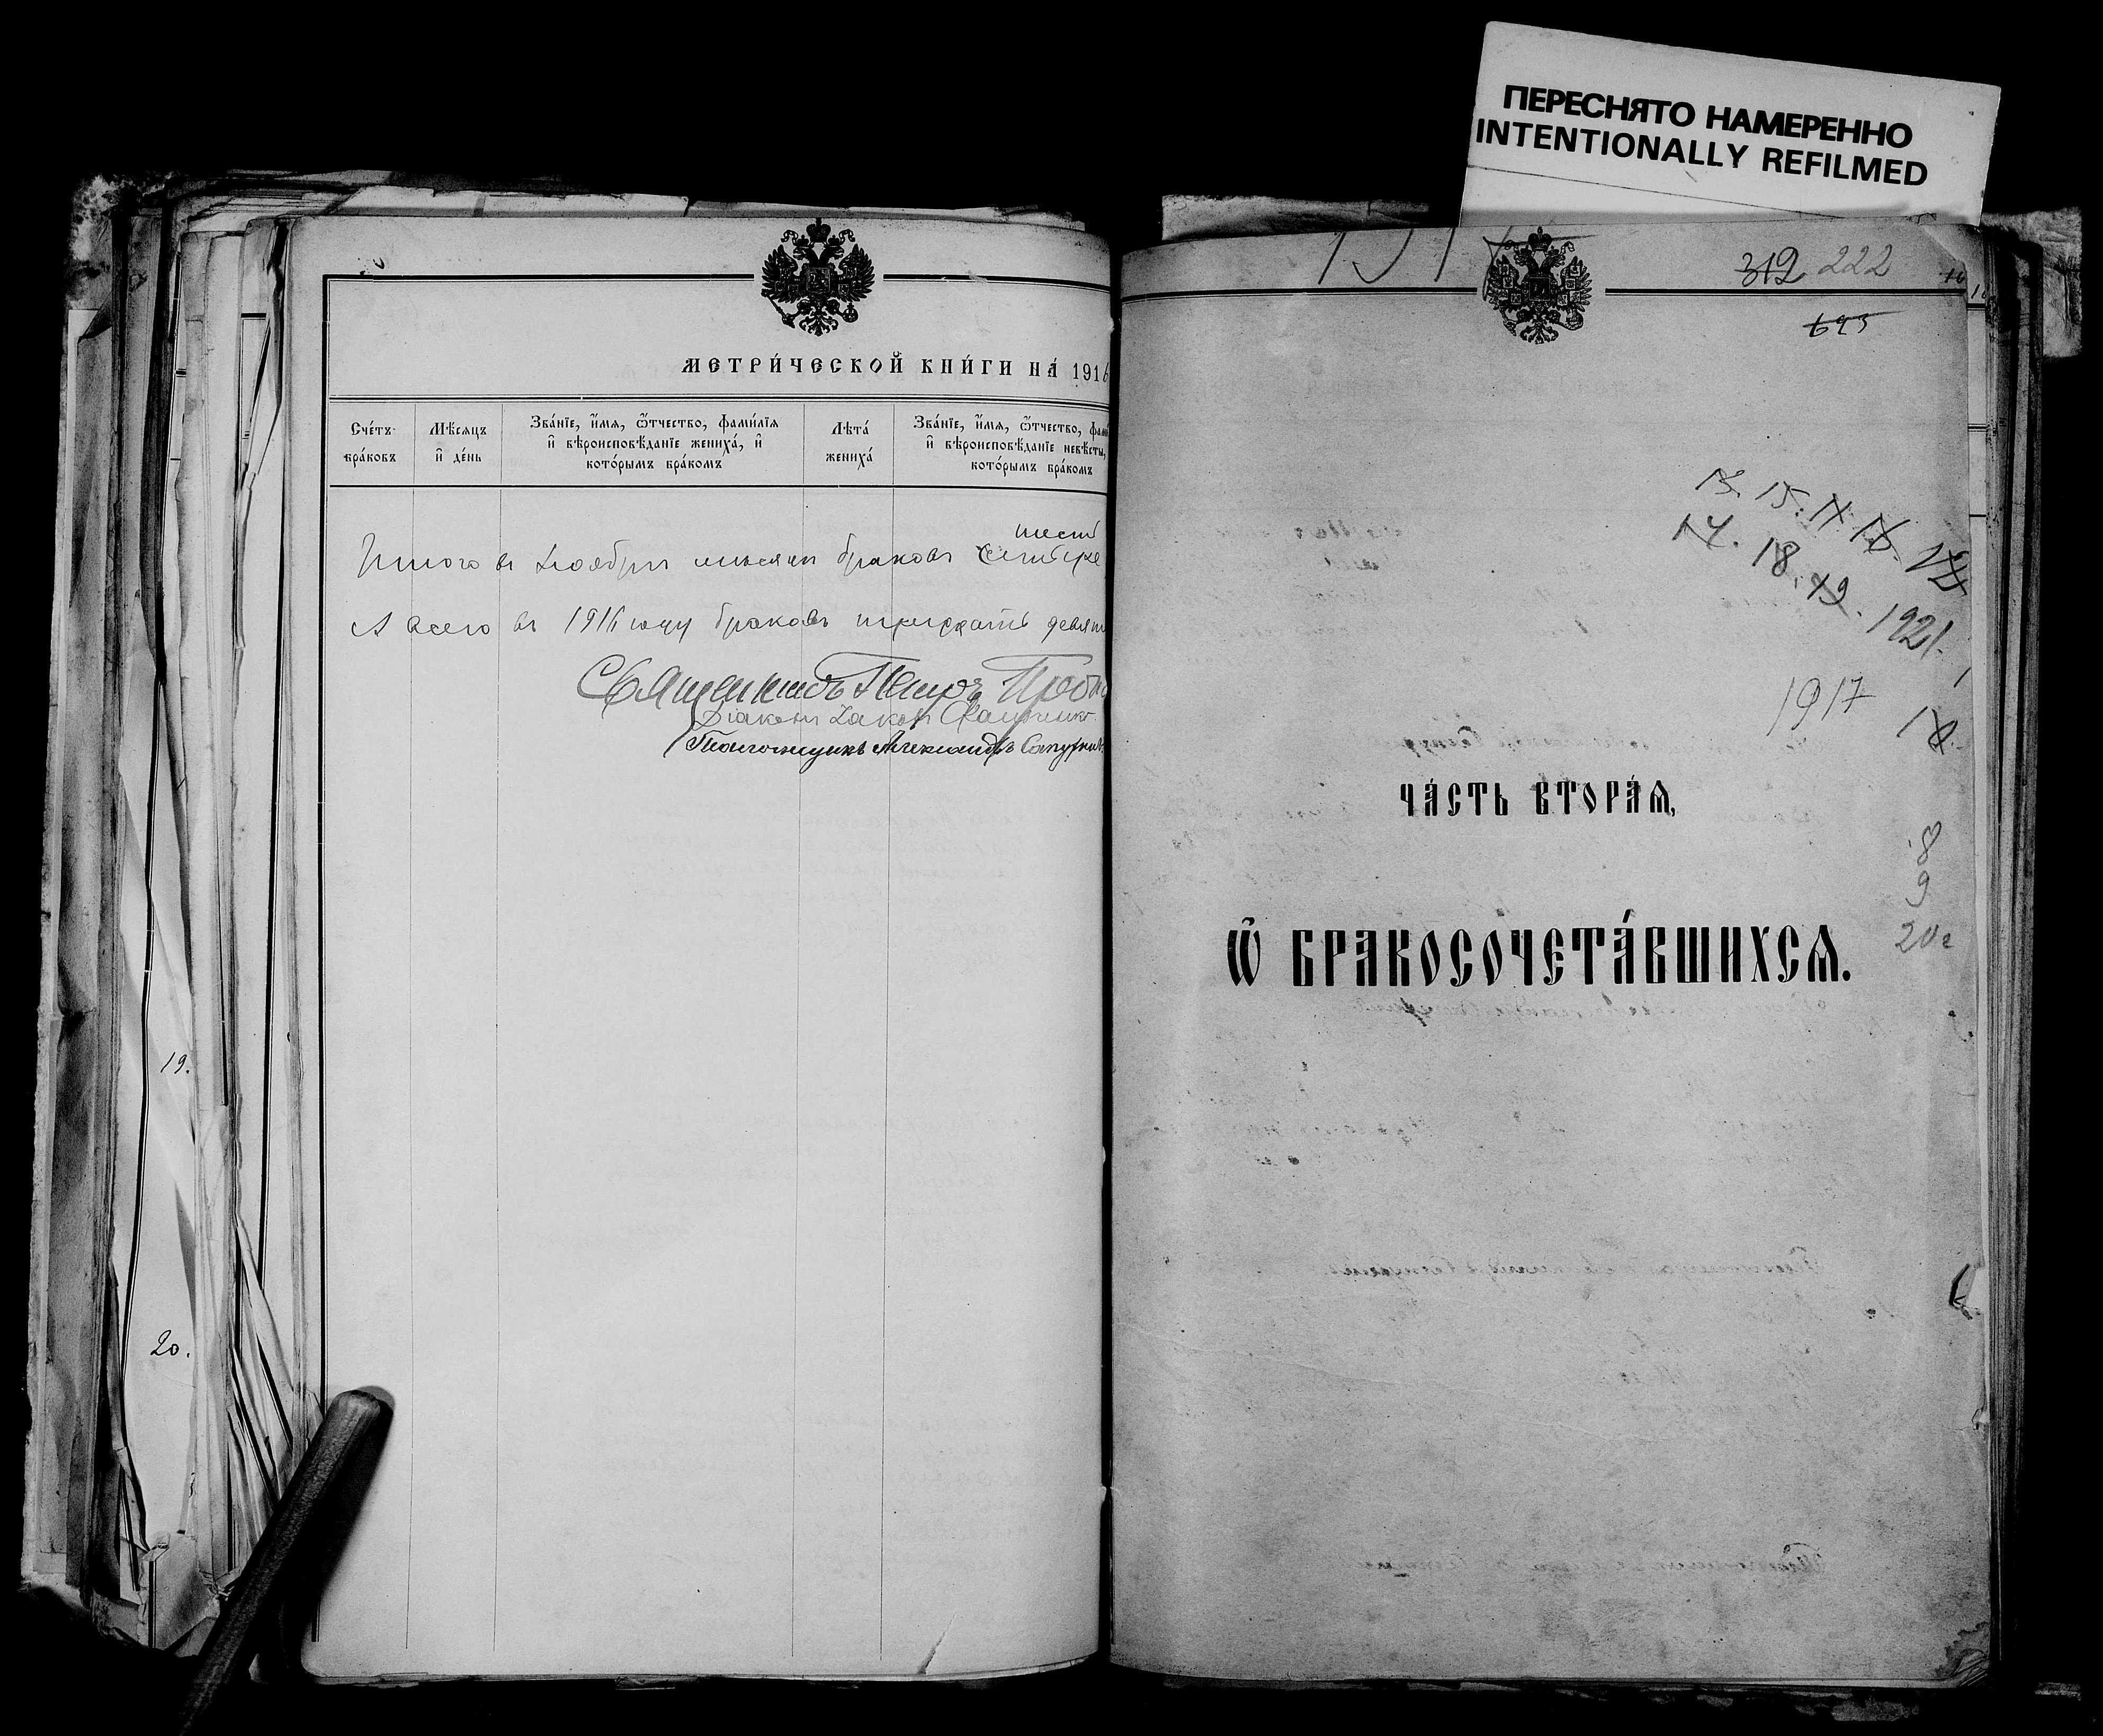 ПЕРЕСНЯТО НАМЕРЕННО
INTENTIONALLY REFILMED
МЕТРИ́ЧЕСКОЙ КНИ́ГИ НА́ 1916
Сче́тъ бра́ковъ
Мѣ́сяцъ и҆ де́нь
Зва́нїе, и҆́мя, ѻ҆́тчество, фами́лїя и҆ вѣроисповѣ́данїе жениха́, и҆ кото́рымъ бра́комъ
Лѣта́ жениха́
Зва́нїе, и҆́мя, ѻ҆́тчество, и҆ вѣроисповѣ́данїе невѣ́сты, кото́рымъ бра́комъ
шесть
Итого въ Ноябрѣ мѣсяцѣ браковъ
А всего въ 1916 году браковъ тридцать
Священникъ Петръ
Діаконъ
Псаломщикъ Александръ
19.
20.
312 222
693
13. 15. 17. 16.
14. 18. 19. 1921.
1917
ЧА́СТЬ ВТОРА́Ѧ,
8
9
20г
Ѽ БРАКОСОЧЕТА́ВШИХСѦ.